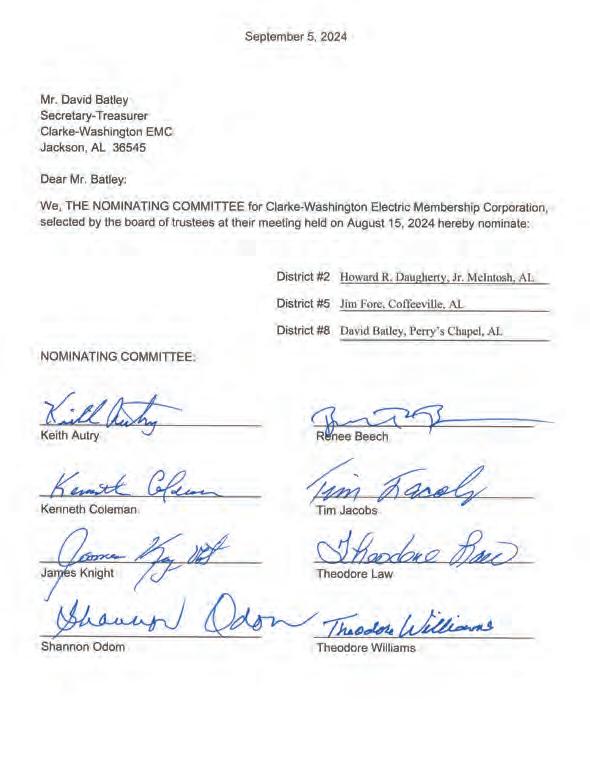 September 5, 2024
Mr. David Batley
Secretary-Treasurer
Clarke-Washington EMC
Jackson, AL 36545
Dear Mr. Batley:
We, THE NOMINATING COMMITTEE for Clarke-Washington Electric Membership Corporation,
selected by the board of trustees at their meeting held on August 15, 2024 hereby nominate:
District #2 Howard R. Daugherty, Jr. McIntosh, AL
District #5 Jim Fore, Coffeeville, AL
District #8 David Batley, Perry's Chapel, AL
NOMINATING COMMITTEE:
Keith Autry
Keith Autry
Renee Beech
Kenneth Coleman
Tim Jacobs
Kenneth Coleman
Tim Jacobs
James Knight
Theodore Law
James Knight
Theodore Law
Shannon Odom
Theodore Williams
Shannon Odom
Theodore Williams